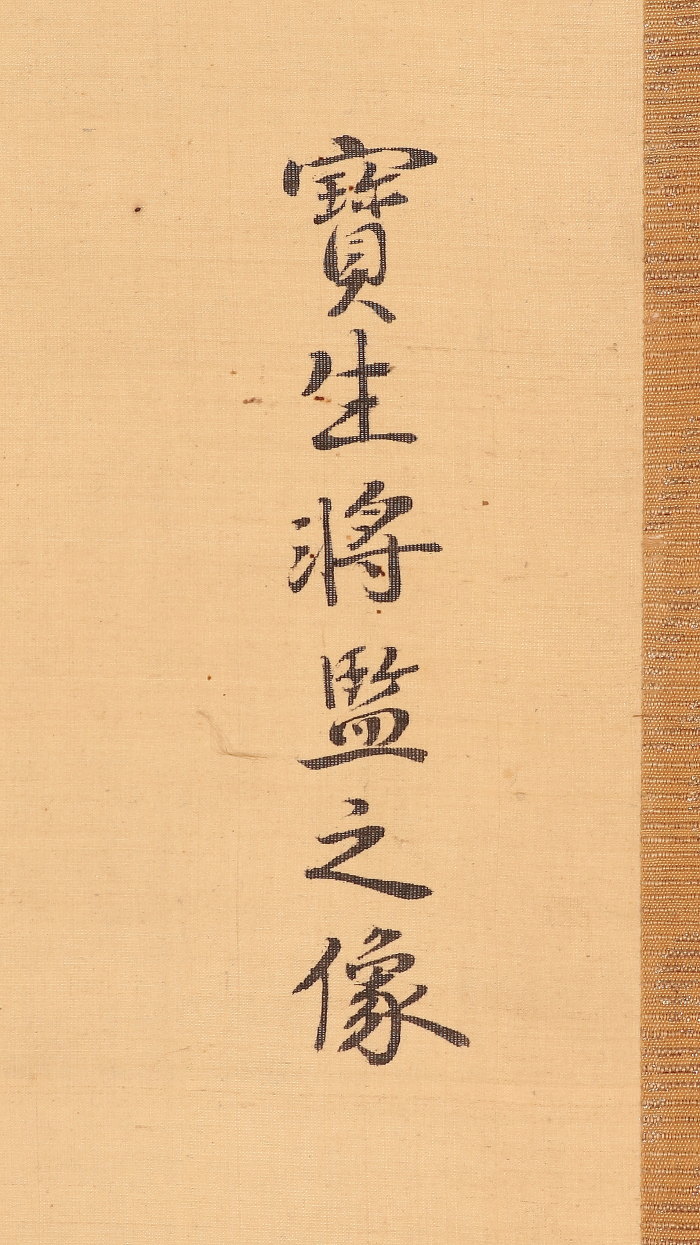 寶生將監之像